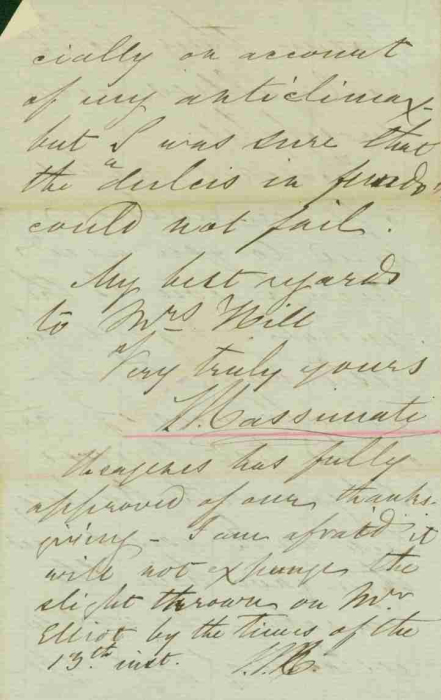 cially on account
of my anticlimax -
but I was sure that
the "dulcis in fundo"
could not fail.
My best regards
to Mrs Hill
Very truly yours
has fully
approved of our thanks-
giving - I am afraid it
will not expunge the
slight thrown on Mr
Elliot by the Times of the
13th inst.